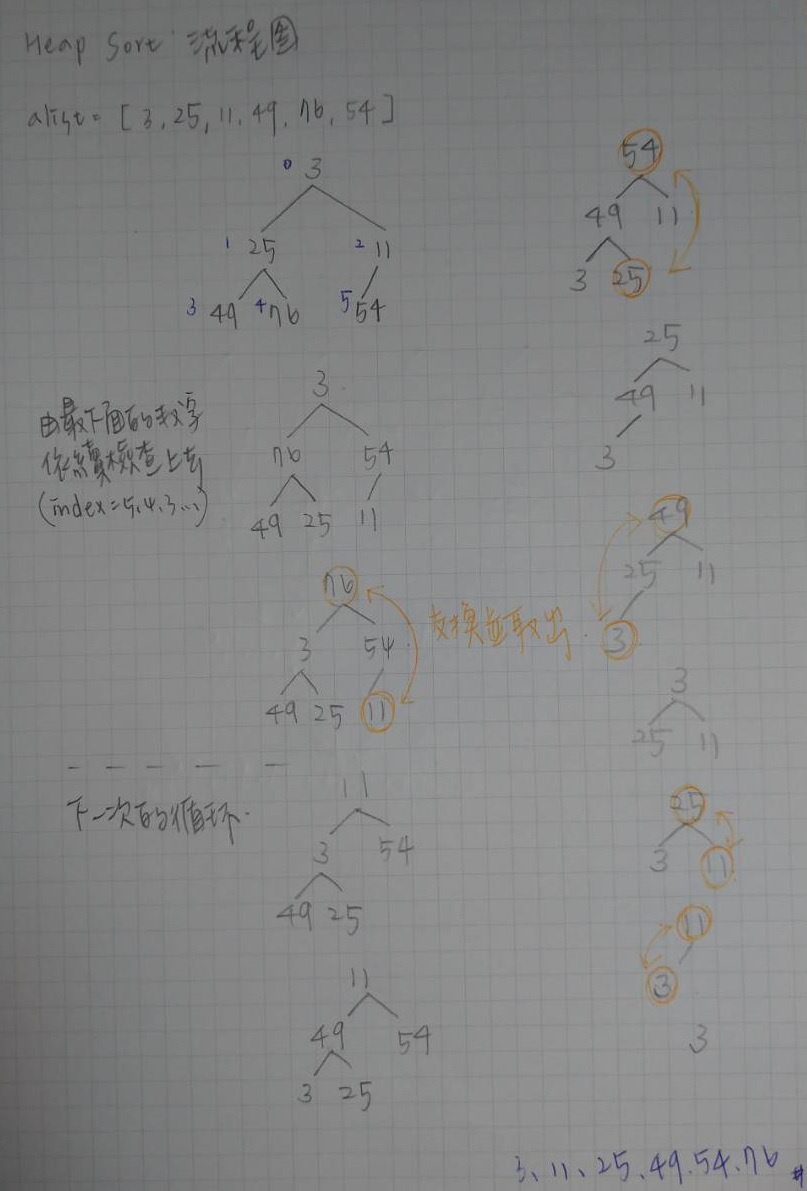 Heap Sort 流程图
alist = [ 3, 25, 11, 49, 76, 54 ]
0 3
1 25 2 11
3 49 4 76 5 54
由最下面的数字
依續檢查上去
(index=5,4,3...)
3
76 54
49 25 11
76
3 54
49 25 11
交換並取出
下一次的循环.
11
3 54
49 25
11
49 54
3 25
54
49 11
3 25
25
49 11
3
49
25 11
3
3
25 11
25
3 11
11
3
3
3、11、25、49.54.76 #